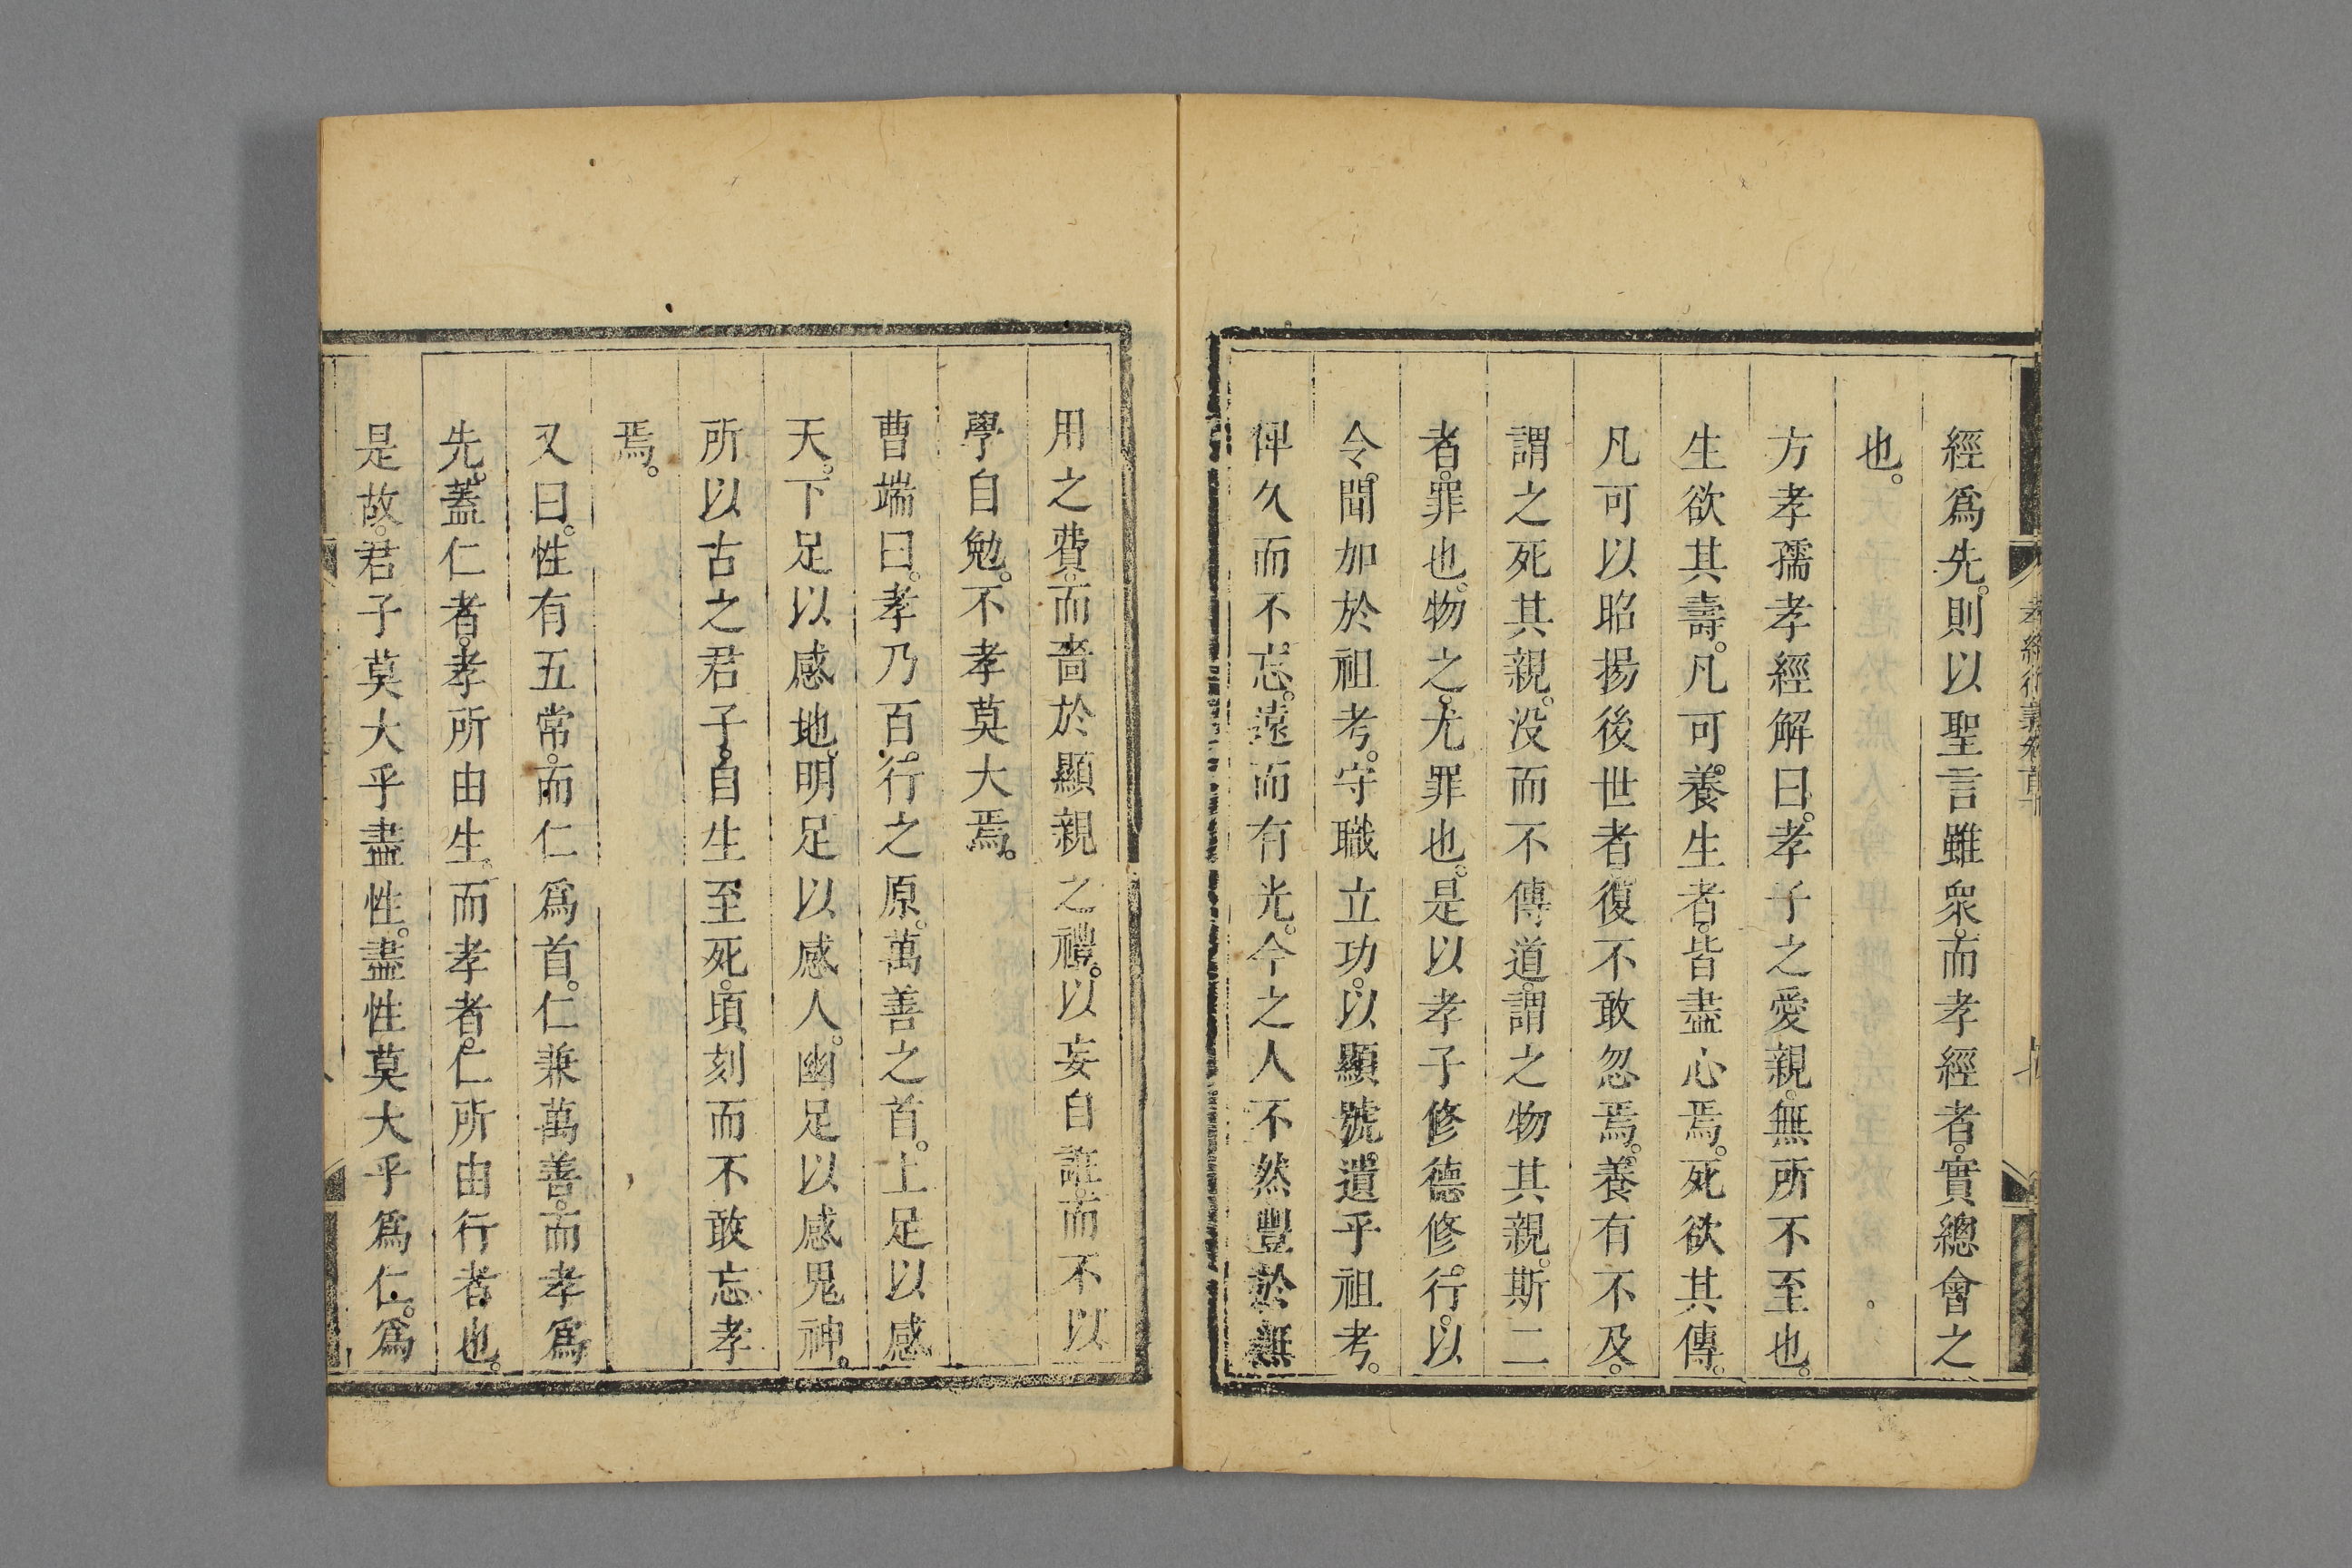 經爲先。則以聖言雖衆。而孝經者。實總會之
也。
方孝孺孝經解曰。孝子之愛親。無所不至也。
生欲其壽。凡可養生者。皆盡心焉。死欲其傳。
凡可以昭揚後世者。復不敢忽焉。養有不及。
謂之死其親。没而不傳道。謂之物其親。斯二
者。罪也。物之。尤罪也。是以孝子修德修行。以
令。聞加於祖考。守職立功。以顯號。遺乎祖考。
俾久而不忘。遠而有光。今之人不然豐於無
用之費。而嗇於顯親之禮。以妄自誑而不以
學自勉。不孝莫大焉。
曹端曰。孝乃百。行之原。萬善之首。上足以感
天。下足以感地。明足以感人。幽足以感鬼神。
所以古之君子。自生至死。頃刻而不敢忘孝
焉。
又曰。性有五常。而仁爲首。仁兼萬善。而孝爲
先。蓋仁者。孝所由生而孝者。仁所由行者也。
是故。君子莫大乎盡性。盡性莫大乎爲仁。爲
孝經衍義卷首